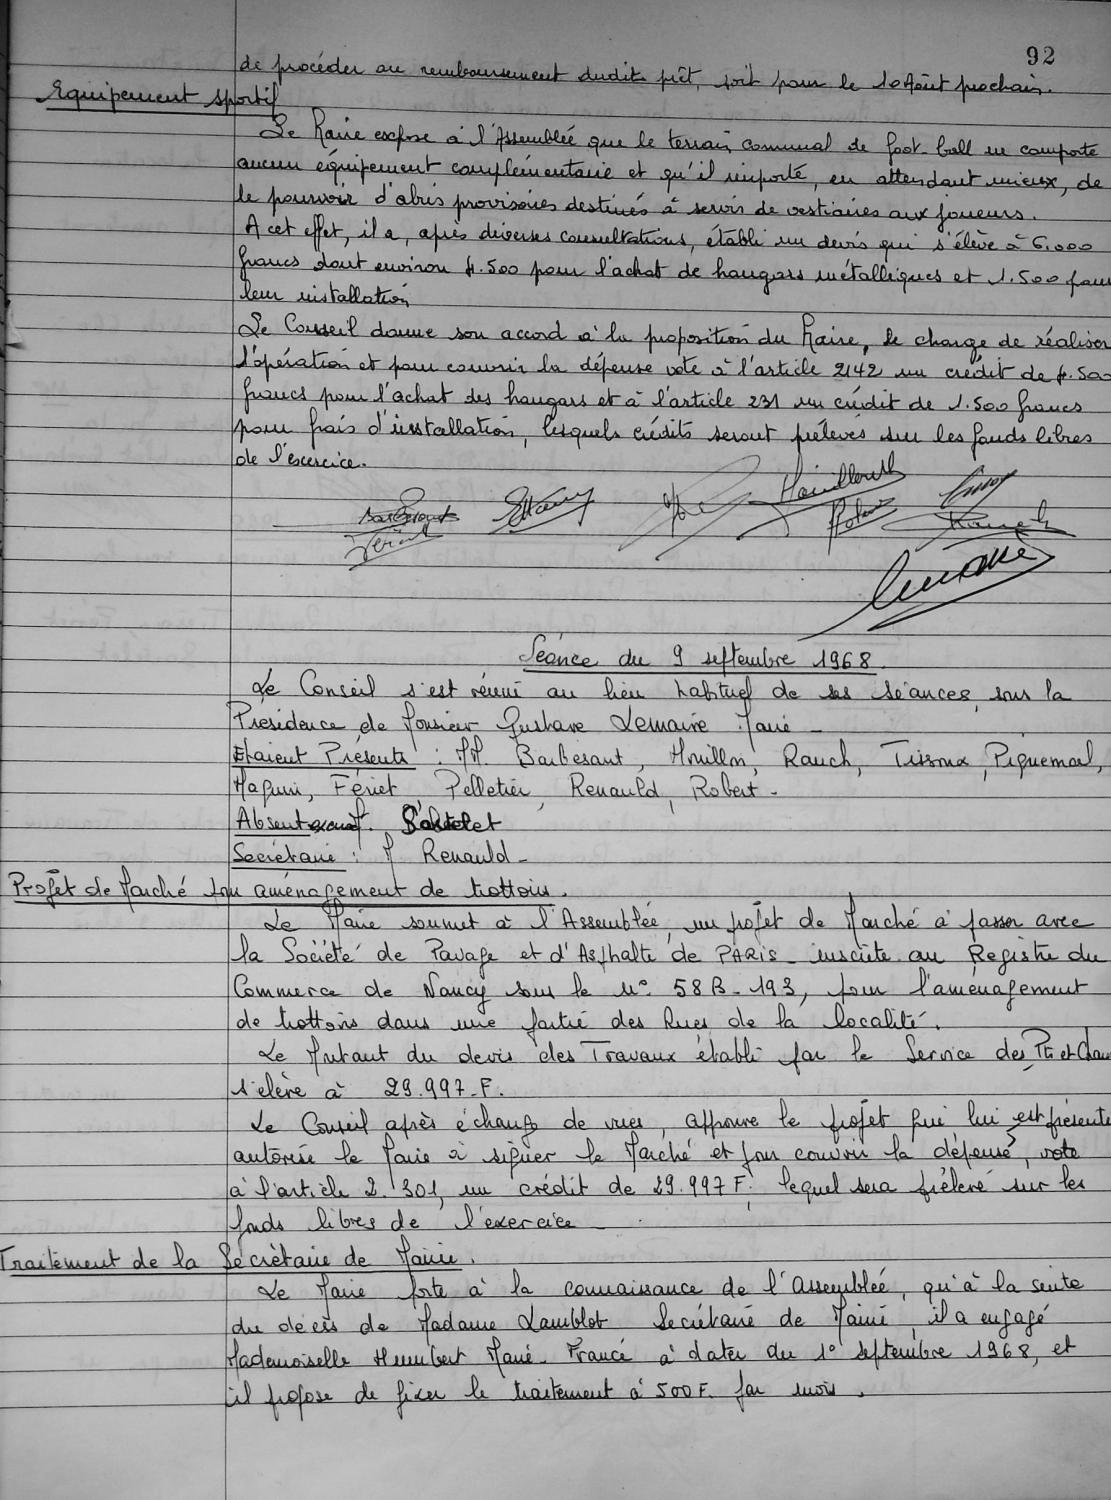 92
de procéder au remboursement dudit prêt, soit pour le 10 Août prochain.
Equipement sportif
Le Maire expose à l'Assemblée que le terrain communal de foot-ball ne comporte
aucun équipement complémentaire et qu'il importe, en attendant mieux, de
le pourvoir d'abris provisoires destinés à servir de vestiaires aux joueurs.
A cet effet, il a, après diverses consultations, établi un devis qui s'élève à 6.000
francs dont environ 4.500 pour l'achat de hangars métalliques et 1.500 pour
leur installation
Le Conseil donne son accord à la proposition du Maire, le charge de réaliser
l'opération et pour couvrir la dépense vote à l'article 2142 un crédit de 4.500
francs pour l'achat des hangars et à l'article 231 un crédit de 1.500 francs
pour frais d'installation, lesquels crédits seront prélevés sur les fonds libres
de l'exercice.
Séance du 9 septembre 1968.
Le Conseil s'est réuni au lieu habituel de ses séances, sous la
Présidence de Monsieur Gustave Lemaire Maire -
Etaient Présents : MM. Barbesant, Houillon, Rauch, Tisoux, Piquemal,
Maguin, Fériet Pelletier, Renauld, Robert -
Absent excusé M.
Secrétaire : M Renauld -
Projet de Marché pour aménagement de trottoirs.
Le Maire soumet à l'Assemblée, un projet de Marché à passer avec
la Société de Pavage et d'Asphalte de PARIS - inscrite au Registre du
Commerce de Nancy sous le N° 58 B - 193, pour l'aménagement
de trottoirs dans une partie des Rues de la localité.
Le Montant du devis des Travaux établi par le Service des Pts et Chau
s'elève à 29.997 F.
Le Conseil après échange de vues, approuve le projet qui lui est présenté
autorise le Maire à signer le Marché et pour couvrir la dépense, vote
à l'article 2.301, un crédit de 29.997 F. lequel sera prélevé sur les
fonds libres de l'exercice -
Traitement de la Secrétaire de Mairie.
Le Maire porte à la connaissance de l'Assemblée, qu'à la suite
du décès de Madame Lamblot Secrétaire de Mairie, il a engagé
Mademoiselle Humbert Marie-France à dater du 1° septembre 1968, et
il propose de fixer le traitement à 500 F. par mois.